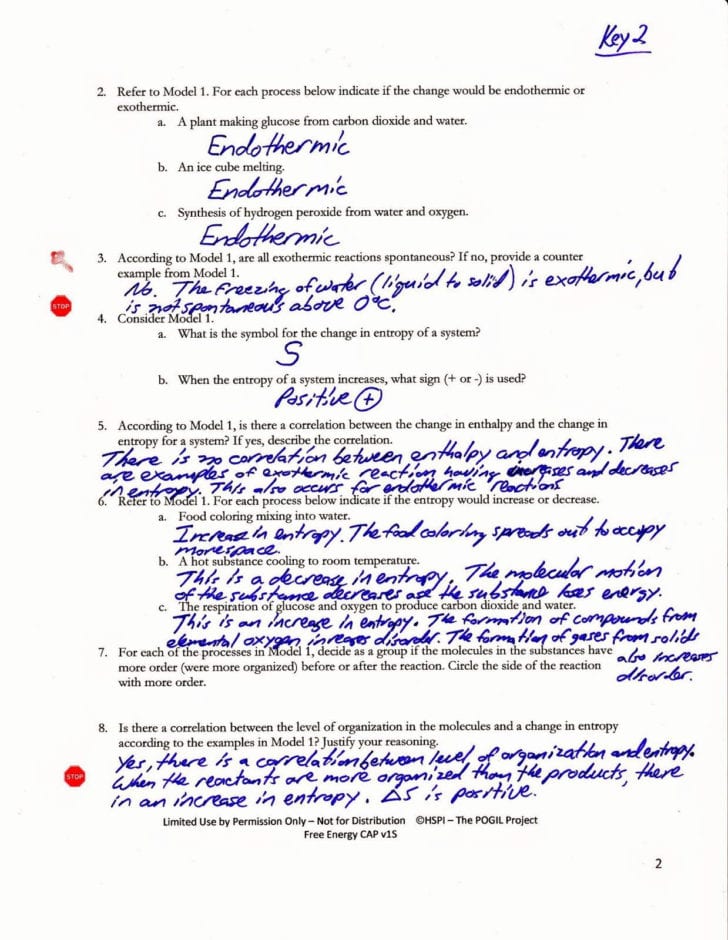 Key 2
2. Refer to Model 1. For each process below indicate if the change would be endothermic or
exothermic.
a. A plant making glucose from carbon dioxide and water.
Endothermic
b. An ice cube melting.
Endothermic
c. Synthesis of hydrogen peroxide from water and oxygen.
Endothermic
3. According to Model 1, are all exothermic reactions spontaneous? If no, provide a counter
example from Model 1.
No. The freezing of water (liquid to solid) is exothermic, but
STOP
is not spontaneous above 0°C.
4. Consider Model 1.
a. What is the symbol for the change in entropy of a system?
S
b. When the entropy of a system increases, what sign (+ or -) is used?
Positive +
5. According to Model 1, is there a correlation between the change in enthalpy and the change in
entropy for a system? If yes, describe the correlation.
There is no correlation between enthalpy and entropy. There
are examples of exothermic reaction having and decreases
in entropy. This also occurs for endothermic reactions
6. Refer to Model 1. For each process below indicate if the entropy would increase or decrease.
a. Food coloring mixing into water.
Increase in entropy. The food coloring spreads out to occupy
more space.
b. A hot substance cooling to room temperature.
This is a decrease in entropy. The molecular motion
of the substance decreases as the substance loses energy.
c. The respiration of glucose and oxygen to produce carbon dioxide and water.
This is an increase in entropy. The formation of compounds from
elemental oxygen increases disorder. The formation of gases from solids
also increases
disorder.
7. For each of the processes in Model 1, decide as a group if the molecules in the substances have
more order (were more organized) before or after the reaction. Circle the side of the reaction
with more order.
8. Is there a correlation between the level of organization in the molecules and a change in entropy
according to the examples in Model 1? Justify your reasoning.
Yes, there is a correlation between level of organization and entropy.
STOP
When the reactants are more organized than the products, there
in an increase in entropy. ΔS is positive.
Limited Use by Permission Only – Not for Distribution ©HSPI – The POGIL Project
Free Energy CAP v1S
2